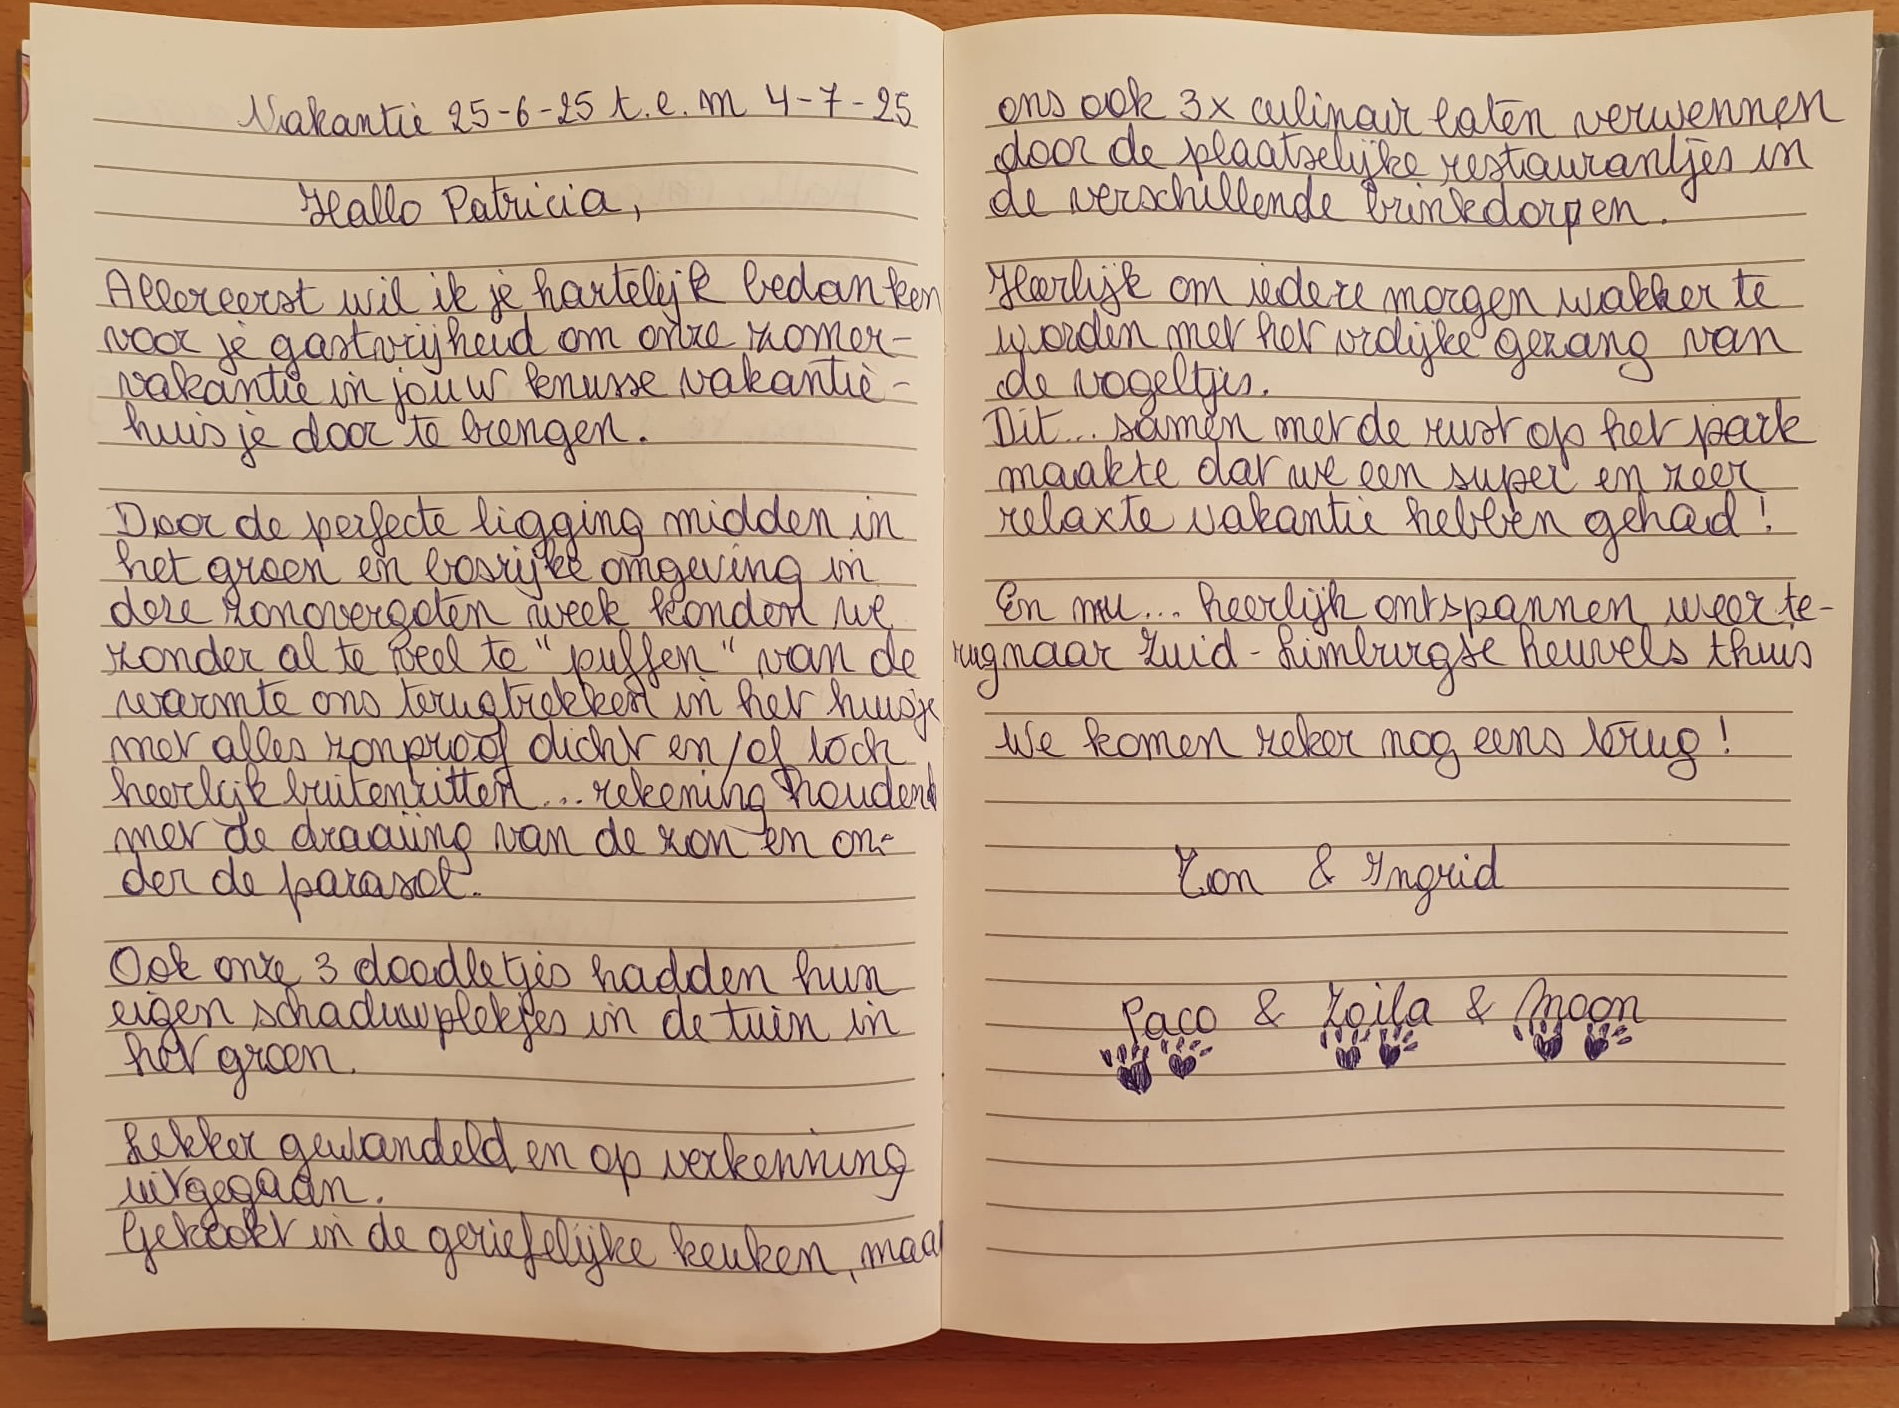 Vakantie 25-6-25 t.e.m 4-7-25
Hallo Patricia,
Allereerst wil ik je hartelijk bedanken
voor je gastvrijheid om onze zomer-
vakantie in jouw knusse vakantie-
huisje door te brengen.
Door de perfecte ligging midden in
het groen en bosrijke omgeving in
deze zonovergoten week konden we
zonder al te veel te "puffen" van de
warmte ons terugtrekken in het huisje
met alles zonproof dicht en/of toch
heerlijk buitenzitten... rekening houdend
met de draaiing van de zon en on-
der de parasol.
Ook onze 3 doodletjes hadden hun
eigen schaduwplekjes in de tuin in
het groen.
Lekker gewandeld en op verkenning
uitgegaan.
Gekookt in de geriefelijke keuken, maar
ons ook 3x culinair laten verwennen
door de plaatselijke restaurantjes in
de verschillende brinkdorpen.
Heerlijk om iedere morgen wakker te
worden met het vrolijke gezang van
de vogeltjes.
Dit... samen met de rust op het park
maakte dat we een super en zeer
relaxte vakantie hebben gehad!
En nu... heerlijk ontspannen weer te-
rug naar Zuid-Limburgse heuvels thuis
We komen zeker nog eens terug!
& Ingrid
Paco & Zoila & Moon